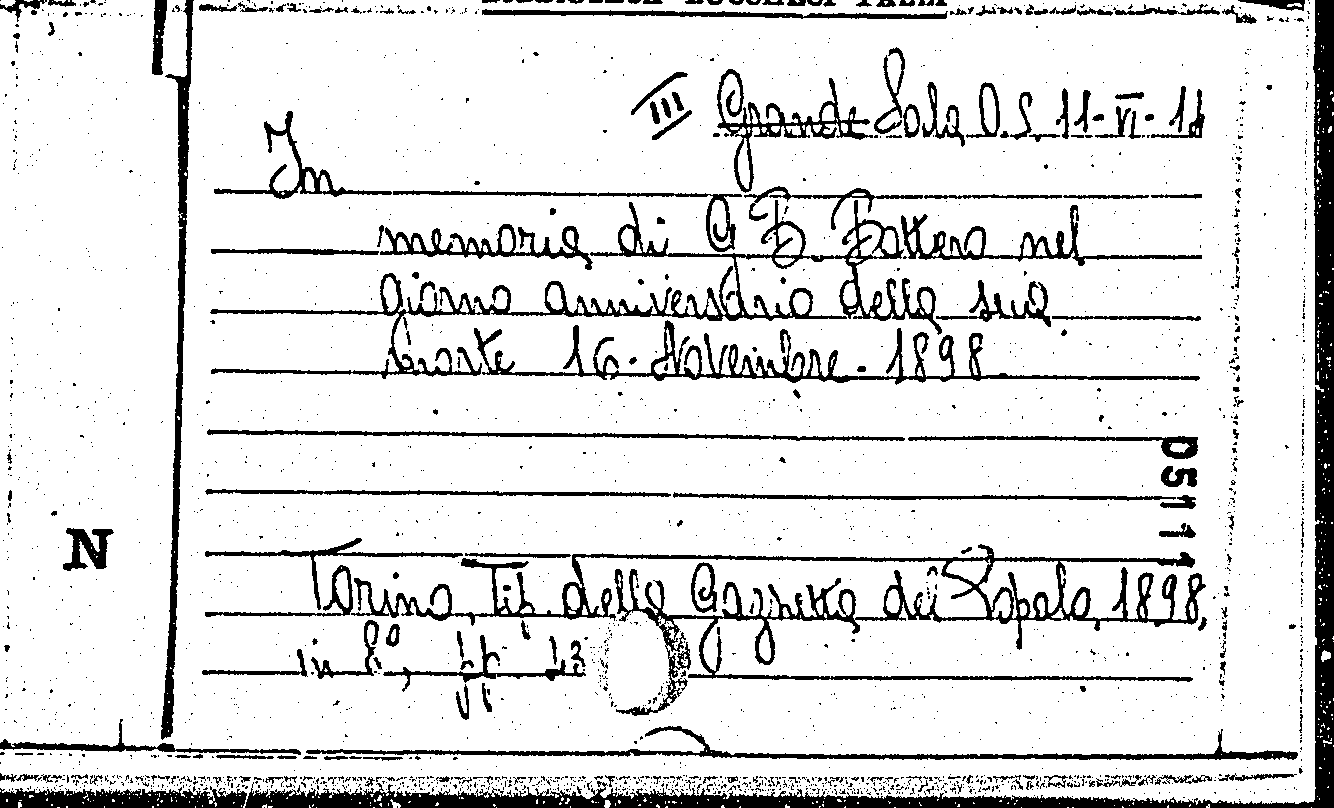 III Grande Sala O. S. 11-VI-11
In
memoria di G B. Bottero nel
giorno anniversario della sua
morte 16. Novembre. 1898.
05111
N
Torino, Tip. della Gazzetta del Popolo, 1898,
in 8°, pp 43